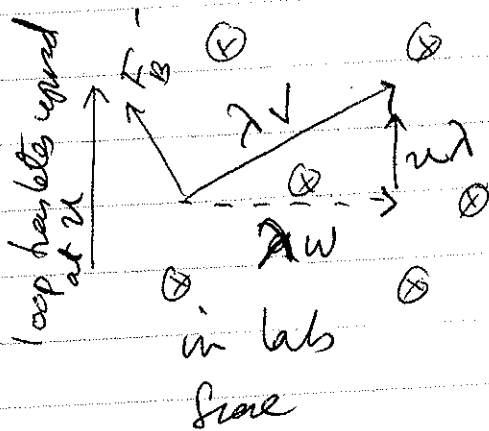 loop translates upward
at u
F_B
λV
uλ
λw
in lab
frame